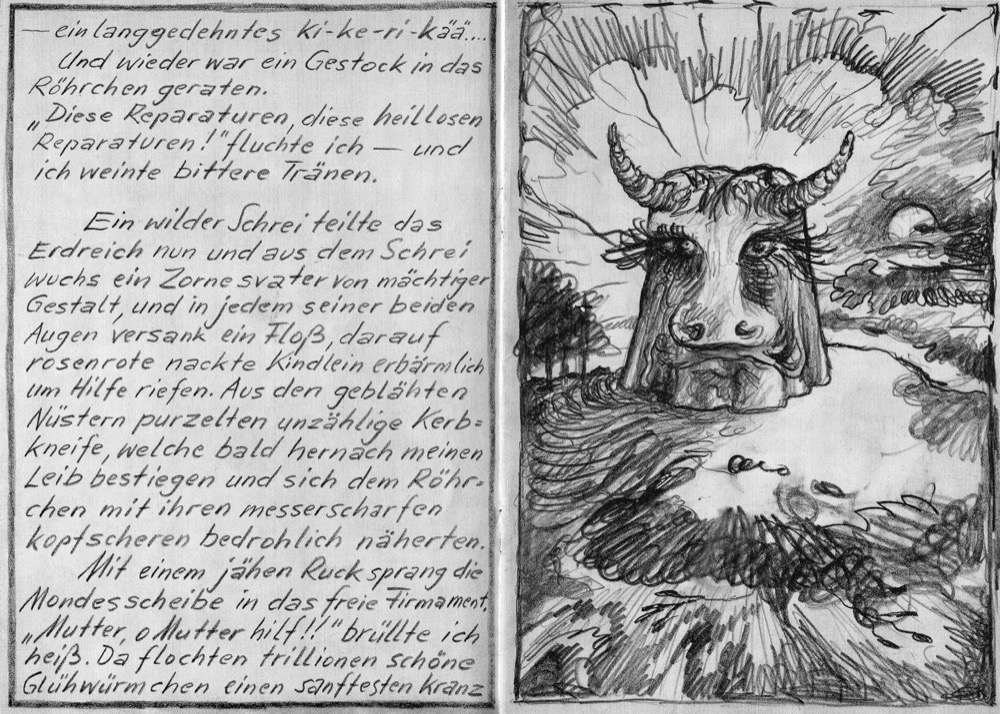 — ein langgedehntes Ki-ke-ri-kää....
Und wieder war ein Gestock in das
Röhrchen geraten.
„Diese Reparaturen, diese heillosen
Reparaturen!" fluchte ich — und
ich weinte bittere Tränen.
Ein wilder Schrei teilte das
Erdreich nun und aus dem Schrei
wuchs ein Zornesvater von mächtiger
Gestalt, und in jedem seiner beiden
Augen versank ein Floß, darauf
rosenrote nackte Kindlein erbärmlich
um Hilfe riefen. Aus den geblähten
Nüstern purzelten unzählige Kerb=
kneife, welche bald hernach meinen
Leib bestiegen und sich dem Röhr=
chen mit ihren messerscharfen
Kopfscheren bedrohlich näherten.
Mit einem jähen Ruck sprang die
Mondesscheibe in das freie Firmament.
„Mutter, o Mutter hilf!!" brüllte ich
heiß. Da flochten trillionen schöne
Glühwürmchen einen sanftesten Kranz